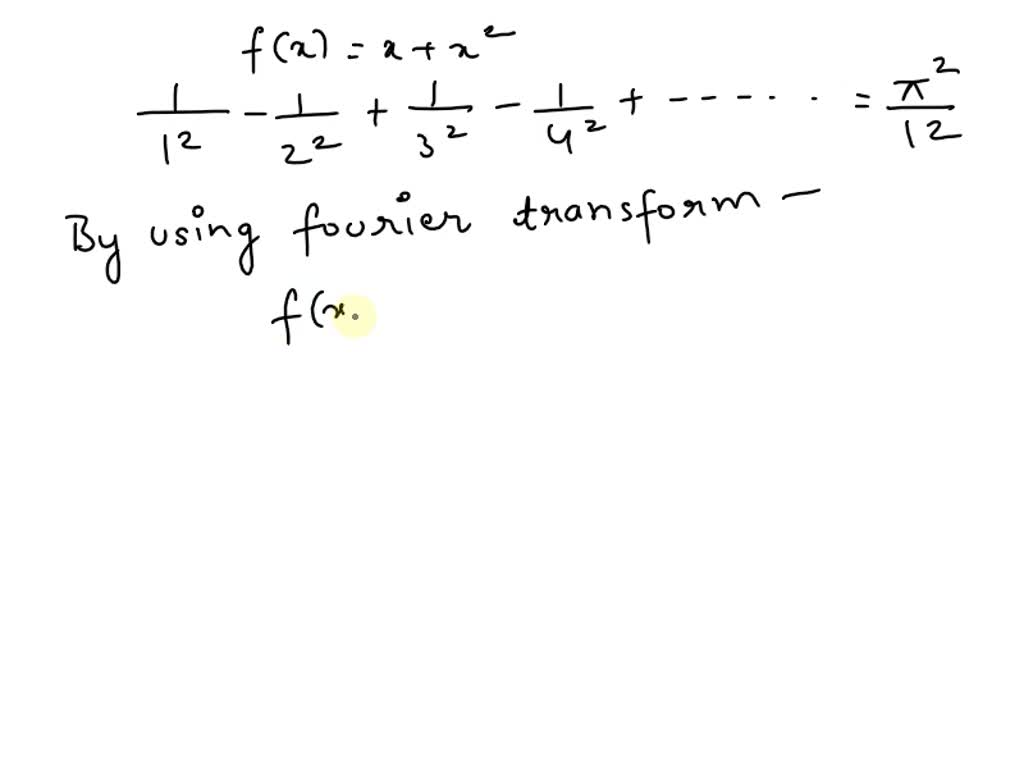 f(x) = x + x²
1/1² - 1/2² + 1/3² - 1/4² + ------ = π²/12
By using fourier transform -
f(x